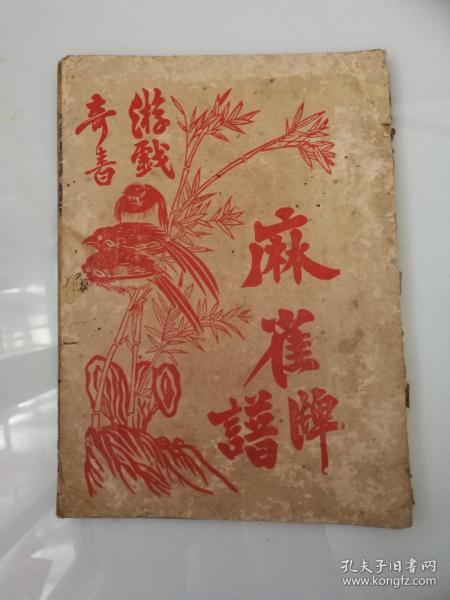 游戲
奇書
麻雀牌
譜
孔夫子旧书网
www.kongfz.com